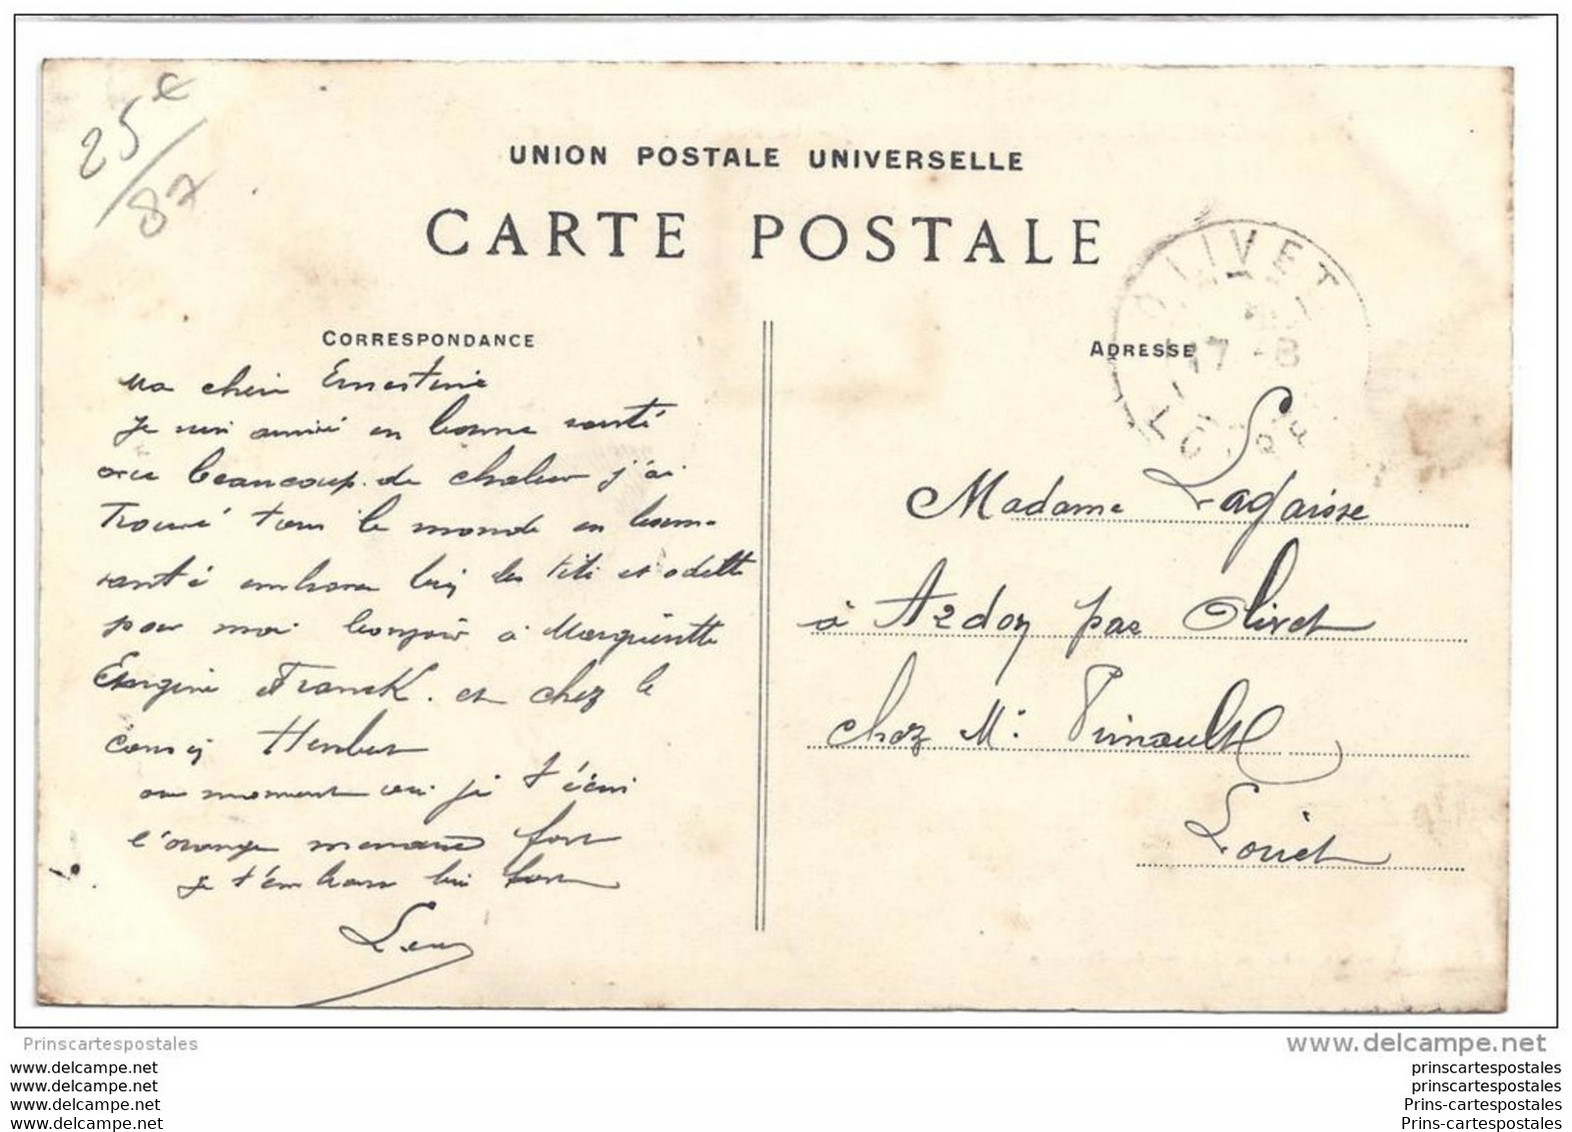 25€
87
UNION POSTALE UNIVERSELLE
CARTE POSTALE
CORRESPONDANCE
ma chère Ernestine
Je suis arrivé en bonne santé
avec beaucoup de chaleur j'ai
Trouvé tous le monde en bonne
santé embrasse bien les titi et odette
pour moi bonjour à Marguerite
et Franck. et chez le
Herbert
au moment que je t'écris
l'orange menace fort
je t'embrasse bien fort
ADRESSE
OLIVET
17 -8
Madame Lagaisse
à Ardon par Olivet
chez Mr Pinault
Loiret
Prinscartespostales
www.delcampe.net
www.delcampe.net
www.delcampe.net
www.delcampe.net
www.delcampe.net
prinscartespostales
prinscartespostales
Prins-cartespostales
Prins-cartespostales